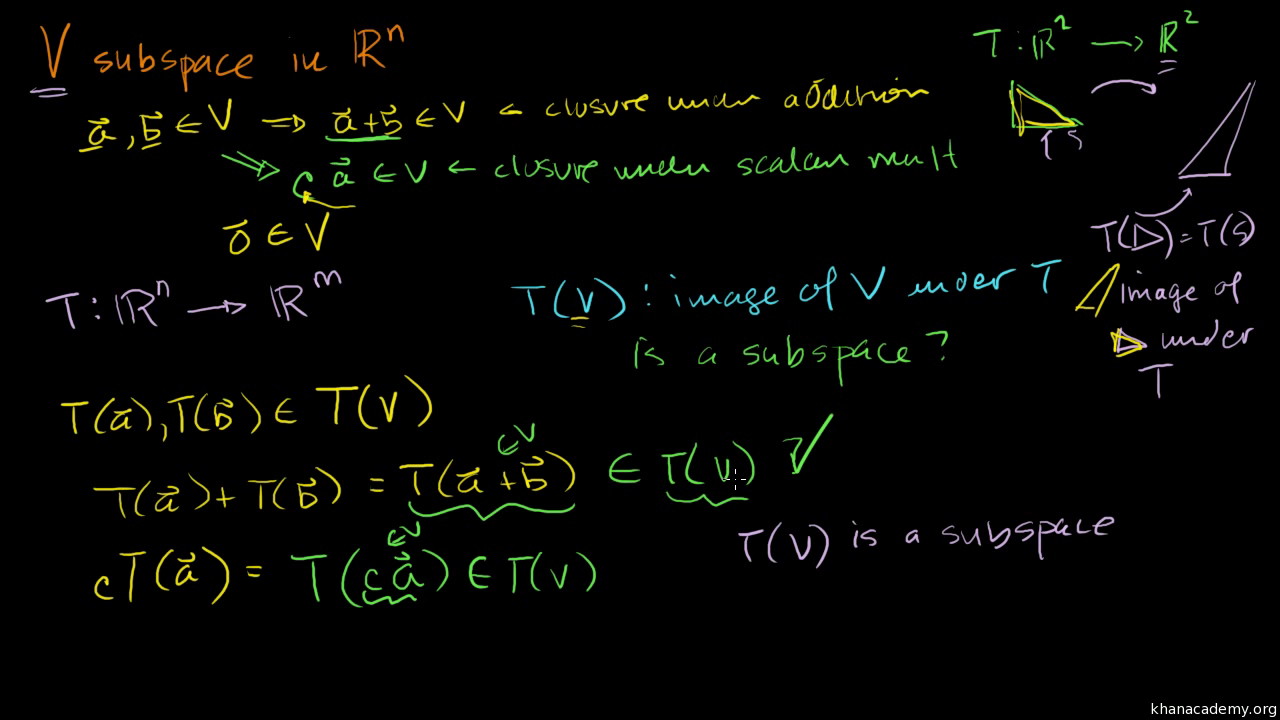 V subspace in ℝⁿ
a⃗, b⃗ ∈ V ⇒ a⃗+b⃗ ∈ V ← closure under addition
⇒ c a⃗ ∈ V ← closure under scalar mult
0⃗ ∈ V
T: ℝⁿ → ℝᵐ
T(V): image of V under T
is a subspace?
T(a⃗), T(b⃗) ∈ T(V)
∈V
T(a⃗) + T(b⃗) = T(a⃗ + b⃗) ∈ T(V) ? ✓
∈V
cT(a⃗) = T(c a⃗) ∈ T(V)
T(V) is a subspace
T: ℝ² → ℝ²
S
T(▷) = T(S)
image of
▷ under
T
khanacademy.org